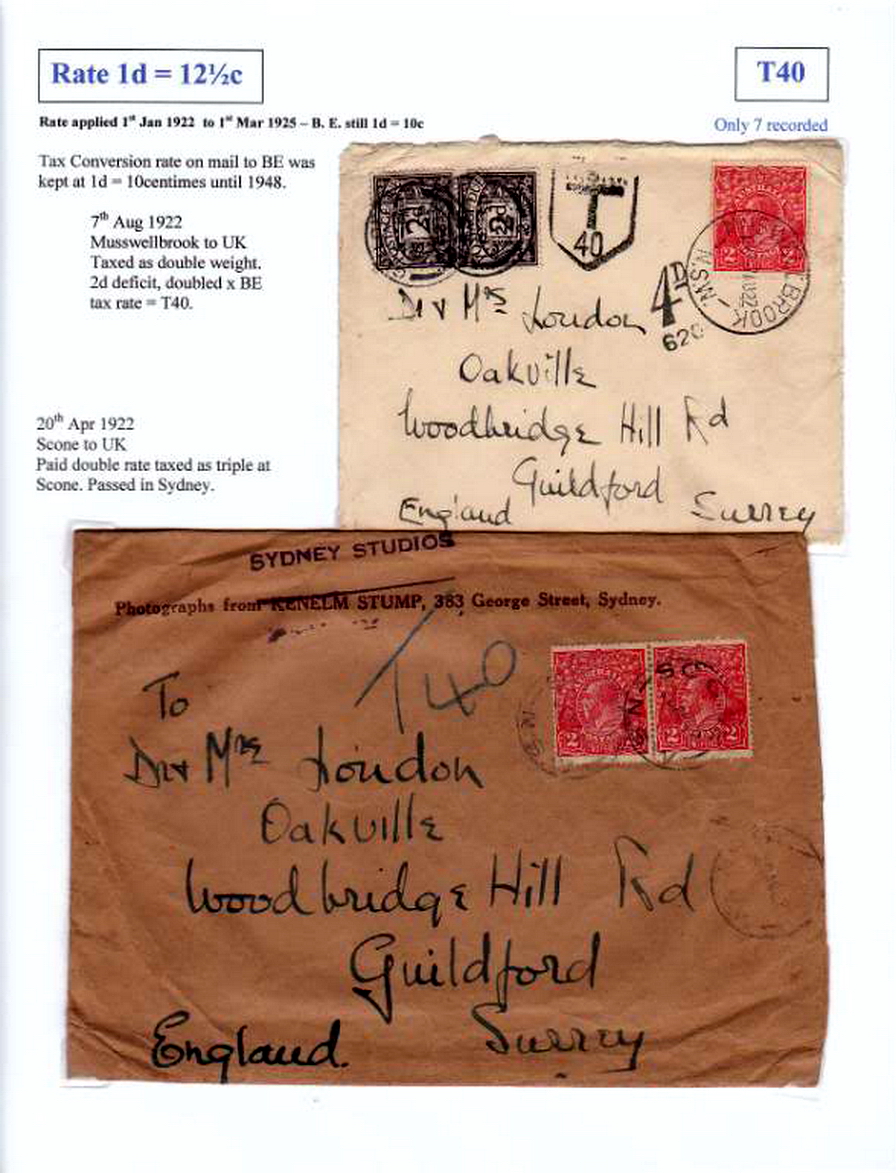 Rate 1d = 12½c
T40
Rate applied 1st Jan 1922 to 1st Mar 1925 – B. E. still 1d = 10c
Only 7 recorded
Tax Conversion rate on mail to BE was
kept at 1d = 10centimes until 1948.
7th Aug 1922
Musswellbrook to UK
Taxed as double weight.
2d deficit, doubled x BE
tax rate = T40.
20th Apr 1922
Scone to UK
Paid double rate taxed as triple at
Scone. Passed in Sydney.
T
40
4D
620
BROOK
N.S.W
2 2
Dr & Mrs Loudon
Oakville
Woodbridge Hill Rd
Guildford
England Surrey
SYDNEY STUDIOS
Photographs from KENELM STUMP, 383 George Street, Sydney.
T40
2 2 2 2
To
Dr & Mrs Loudon
Oakville
Woodbridge Hill Rd
Guildford
England. Surrey